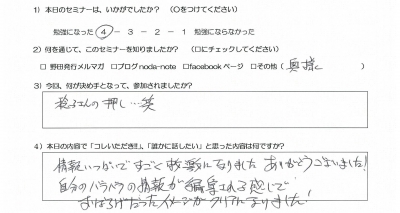 1) 本日のセミナーは、いかがでしたか？（○をつけてください）
勉強になった ④ － 3 － 2 － 1 勉強にならなかった
2) 何を通じて、このセミナーを知りましたか？（□にチェックしてください）
□ 野田発行メルマガ □ブログnoda-note □facebookページ □その他（奥様）
3) 今回、何が決め手となって、参加されましたか？
さんの押し…笑
4) 本日の内容で「コレいただき!!」、「誰かに話したい」と思った内容は何ですか？
情報いっぱいですごく勉強になりました ありがとうございました！
自分のバラバラの情報が編集される感じで
おぼろげだったイメージがクリアになりました！